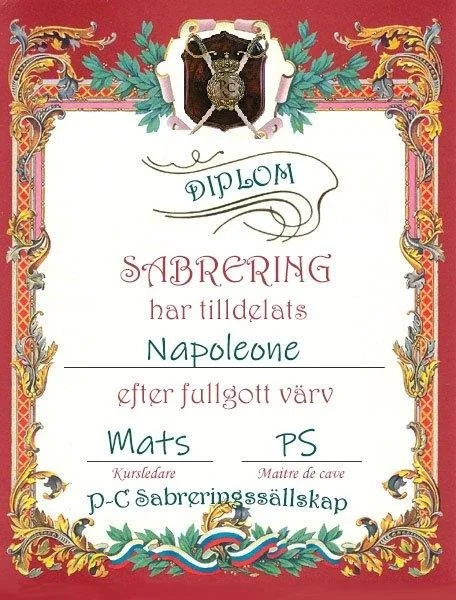 DIPLOM
SABRERING
har tilldelats
Napoleone
efter fullgott värv
Mats PS
Kursledare Maitre de cave
P-C Sabreringssällskap